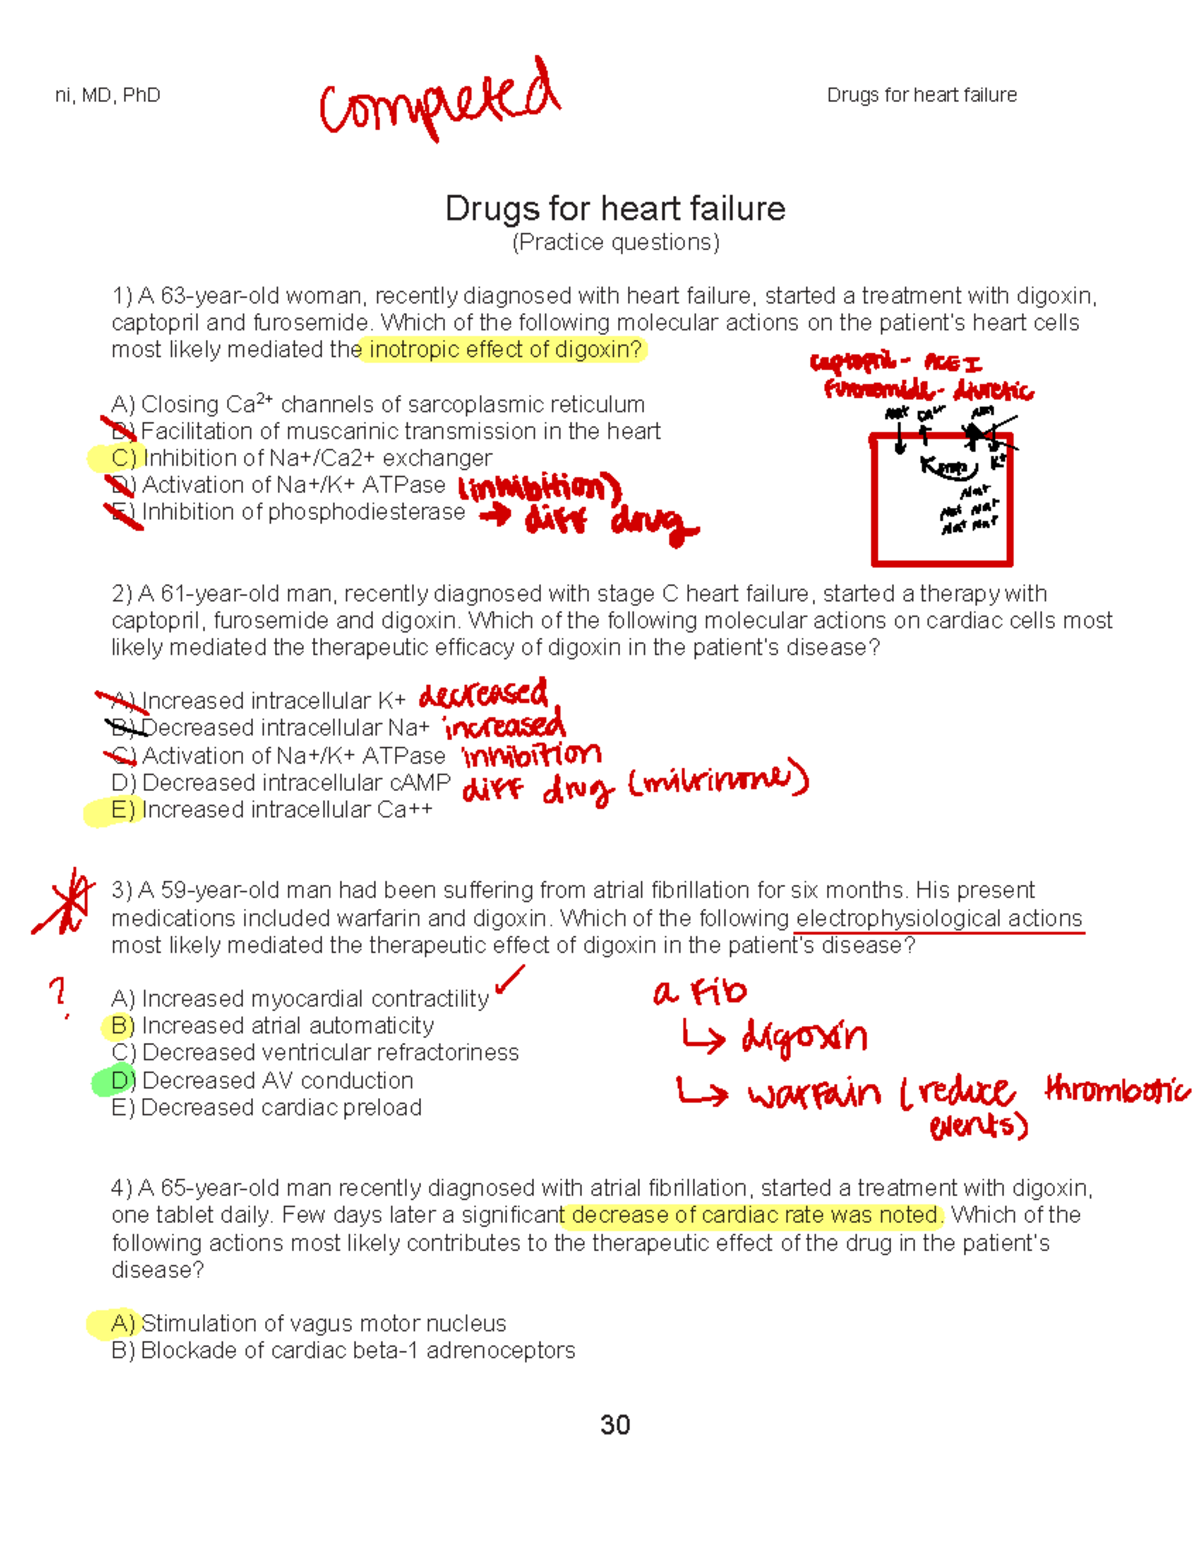 ni, MD, PhD
completed
Drugs for heart failure
Drugs for heart failure
(Practice questions)
1) A 63-year-old woman, recently diagnosed with heart failure, started a treatment with digoxin,
captopril and furosemide. Which of the following molecular actions on the patient's heart cells
most likely mediated the inotropic effect of digoxin?
captopril - ACE I
furosemide - diuretic
A) Closing Ca2+ channels of sarcoplasmic reticulum
B) Facilitation of muscarinic transmission in the heart
C) Inhibition of Na+/Ca2+ exchanger
D) Activation of Na+/K+ ATPase (inhibition)
E) Inhibition of phosphodiesterase → diff drug
Na+ Ca++
K+
Na+
Na+ Na+
Na+ Na+
2) A 61-year-old man, recently diagnosed with stage C heart failure, started a therapy with
captopril, furosemide and digoxin. Which of the following molecular actions on cardiac cells most
likely mediated the therapeutic efficacy of digoxin in the patient's disease?
A) Increased intracellular K+ decreased
B) Decreased intracellular Na+ increased
C) Activation of Na+/K+ ATPase inhibition
D) Decreased intracellular cAMP diff drug (milrinone)
E) Increased intracellular Ca++
3) A 59-year-old man had been suffering from atrial fibrillation for six months. His present
medications included warfarin and digoxin. Which of the following electrophysiological actions
most likely mediated the therapeutic effect of digoxin in the patient's disease?
?
A) Increased myocardial contractility
B) Increased atrial automaticity
C) Decreased ventricular refractoriness
D) Decreased AV conduction
E) Decreased cardiac preload
a fib
↳ digoxin
↳ warfain (reduce thrombotic
events)
4) A 65-year-old man recently diagnosed with atrial fibrillation, started a treatment with digoxin,
one tablet daily. Few days later a significant decrease of cardiac rate was noted. Which of the
following actions most likely contributes to the therapeutic effect of the drug in the patient's
disease?
A) Stimulation of vagus motor nucleus
B) Blockade of cardiac beta-1 adrenoceptors
30